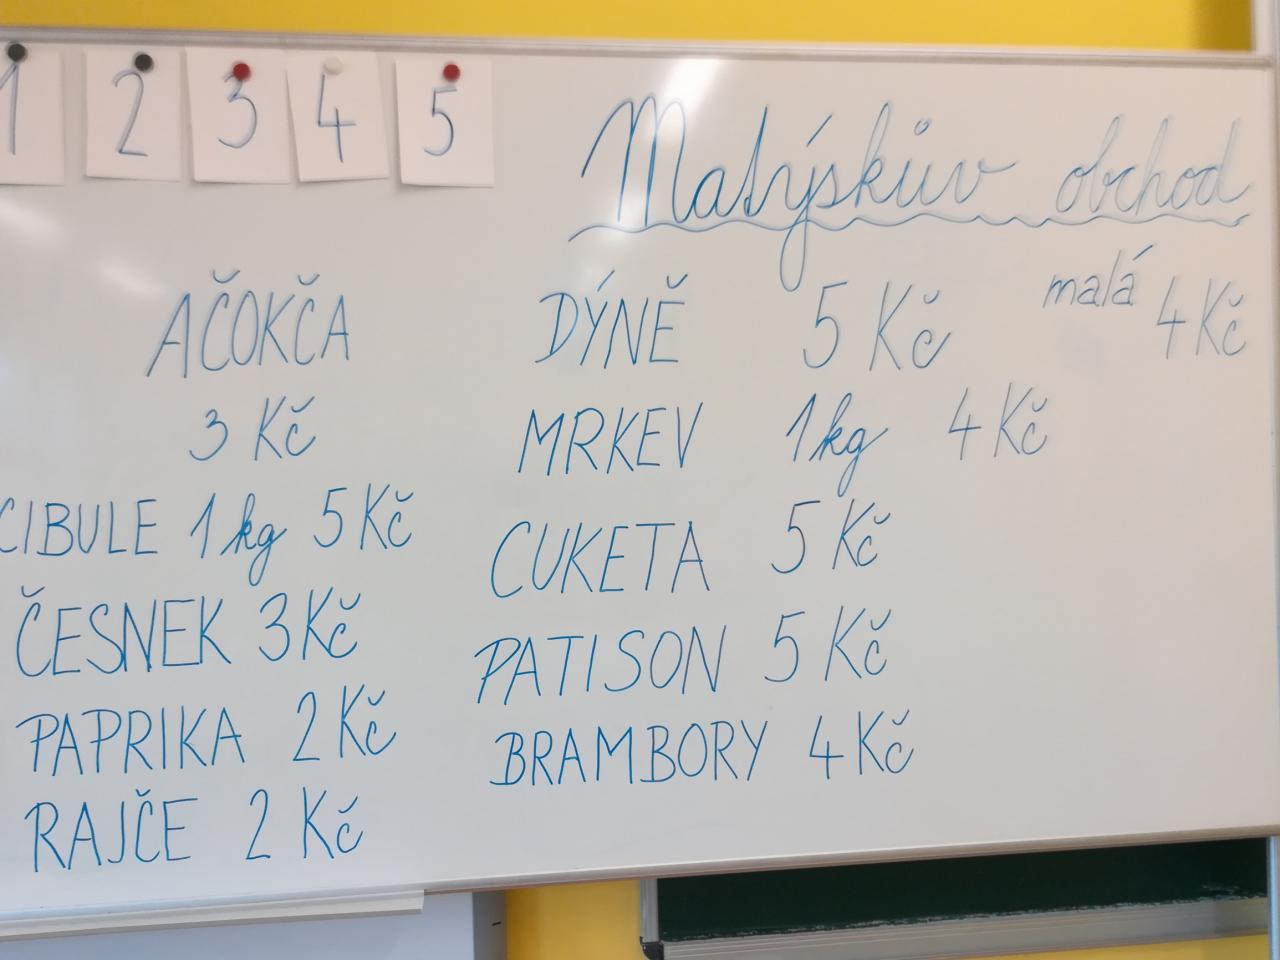 1 2 3 4 5
Matýskův obchod
AČOKČA
3 Kč
CIBULE 1 kg 5 Kč
ČESNEK 3 Kč
PAPRIKA 2 Kč
RAJČE 2 Kč
DÝNĚ 5 Kč malá 4 Kč
MRKEV 1 kg 4 Kč
CUKETA 5 Kč
PATISON 5 Kč
BRAMBORY 4 Kč